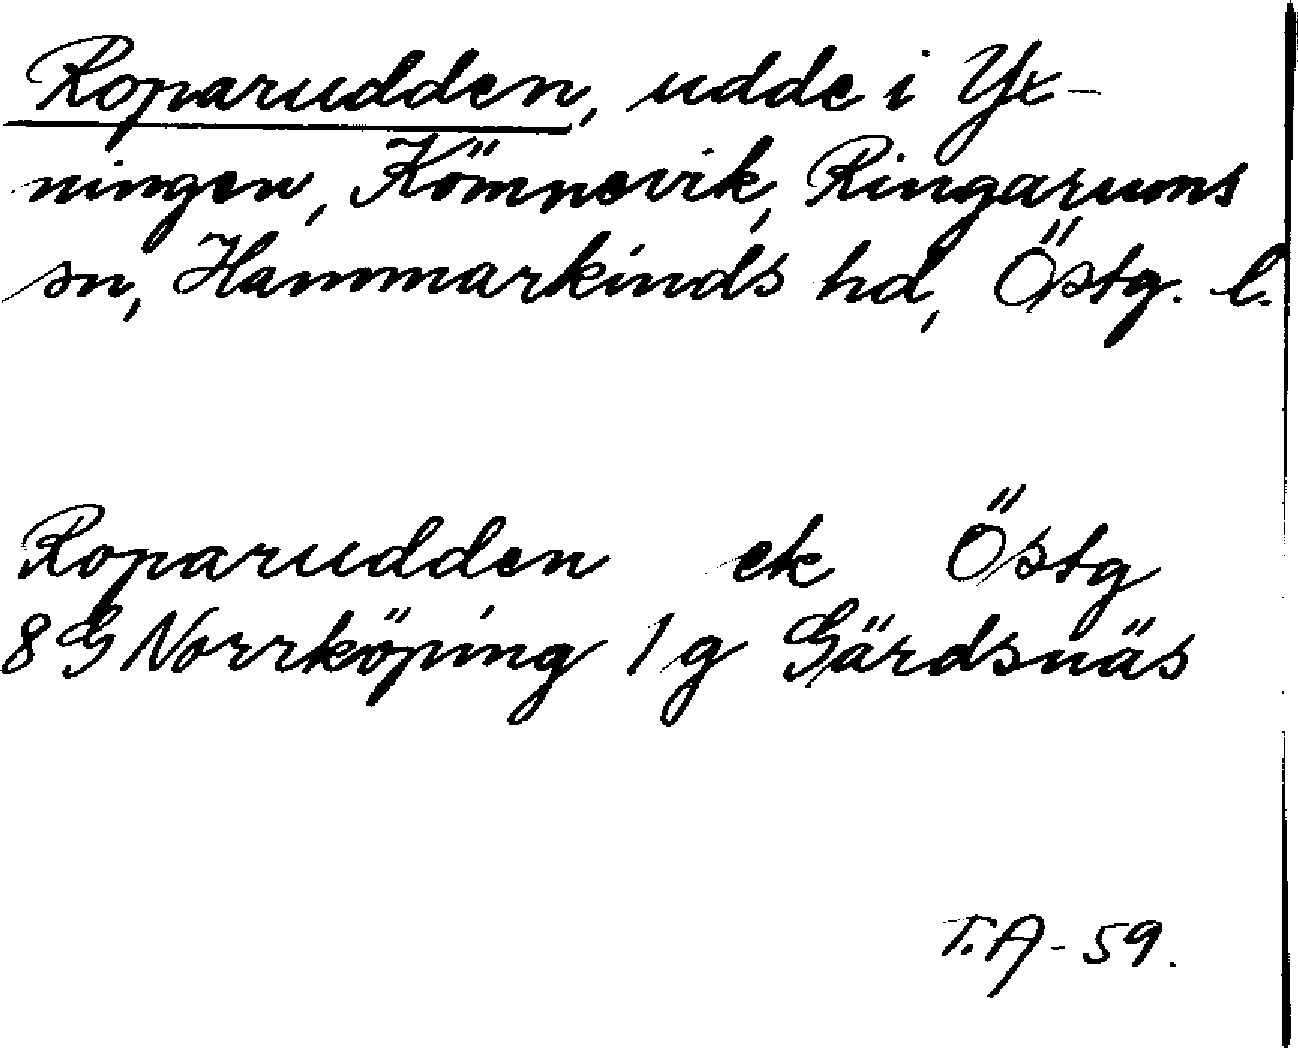 Roparudden, udde i Yx-
ningen, Kömnevik, Ringarums
sn, Hammarkinds hd, Östg. l.
Roparudden ek Östg
8 G Norrköping 1 g Gärdsnäs
T.A-59.